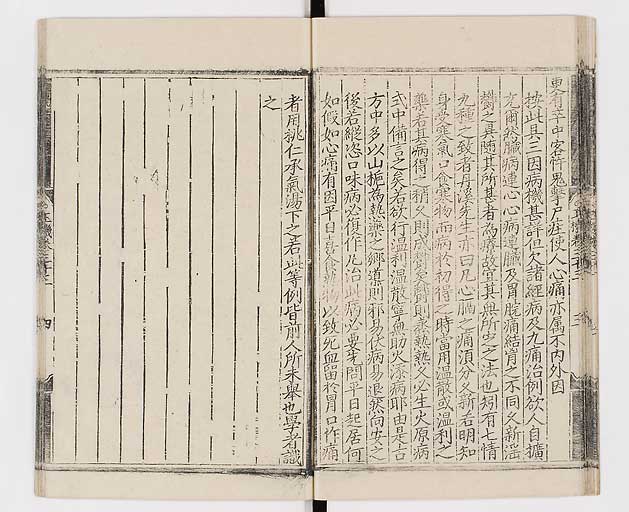 更有卒中客忤鬼擊尸疰使人心痛亦属不内外因
按此具三因病機甚詳但欠諸經病及九痛治例欲人自擴
充爾然臟病連心心病連臟及胃脘痛結胷之不同久新滛
欝之異随其所甚者為療故宜其無所出之法也矧有七情
九種之致者丹溪先生亦曰凡心膈之痛湏分久新若明知
身受寒氣口食寒物而病於初得之時當用温散或温利之
藥若其病得之稍久則成欝矣欝則蒸熱熱久必生火原病
式中備言之矣若欲行温利温散寧無助火添病耶由是古
方中多以山梔為熱藥之郷導則邪易伏病易退然向安之
後若縱恣口味病必復作凢治此病必要先問平日起居何
如假如心痛有因平日喜食熱物以致死血留於胃口作痛
者用桃仁承氣湯下之若此等例皆前人所未舉也學者識
之
玉機卷三十二
四